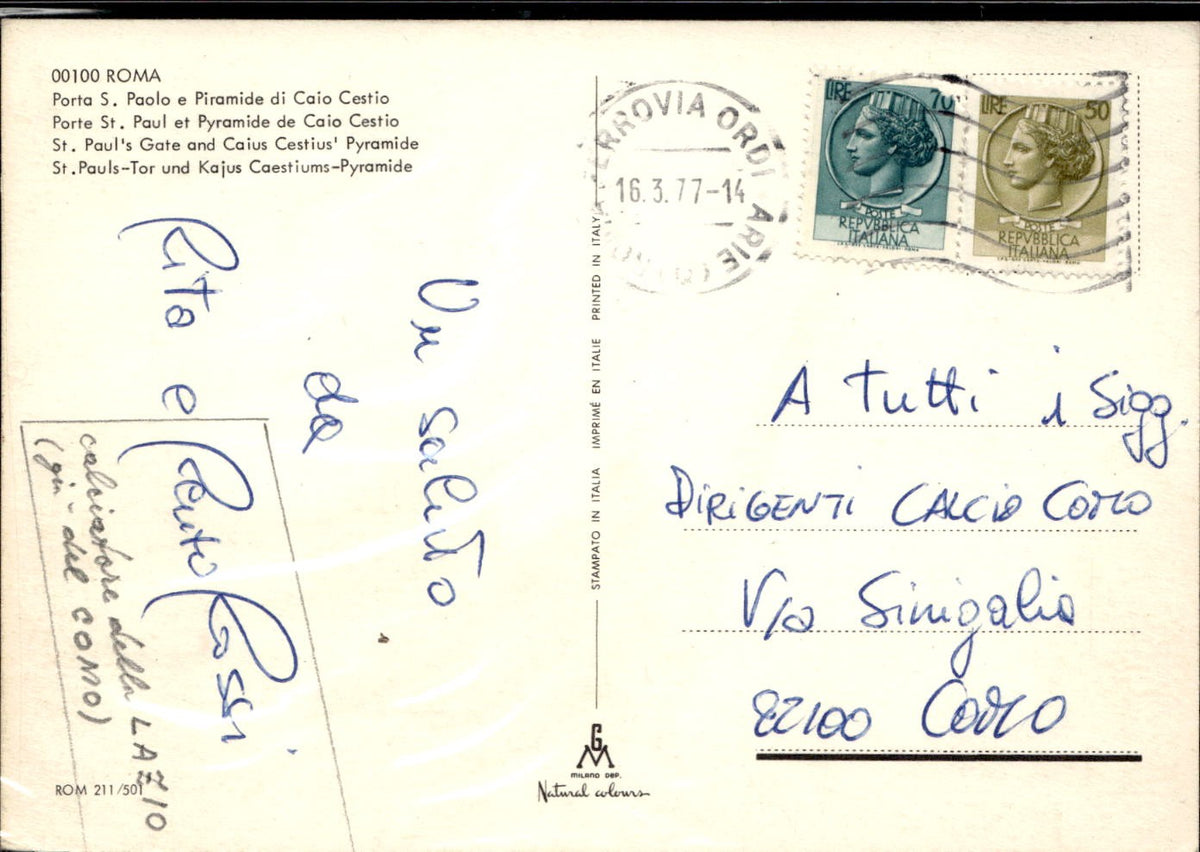 00100 ROMA
Porta S. Paolo e Piramide di Caio Cestio
Porte St. Paul et Pyramide de Caio Cestio
St. Paul's Gate and Caius Cestius' Pyramide
St. Pauls-Tor und Kajus Caestiums-Pyramide
Un saluto
da
Rita e Renito Rossi
calciatore della LAZIO
(già del COMO)
ROM 211/501
STAMPATO IN ITALIA IMPRIMÉ EN ITALIE PRINTED IN ITALY
GM
MILANO DEP.
Natural colours
FERROVIA ORDINARIE
16.3.77-14
LIRE 70
POSTE
REPVBBLICA
ITALIANA
LIRE 50
POSTE
REPVBBLICA
ITALIANA
A Tutti i Sigg.
DIRIGENTI CALCIO COMO
Via Sinigalia
22100 COMO